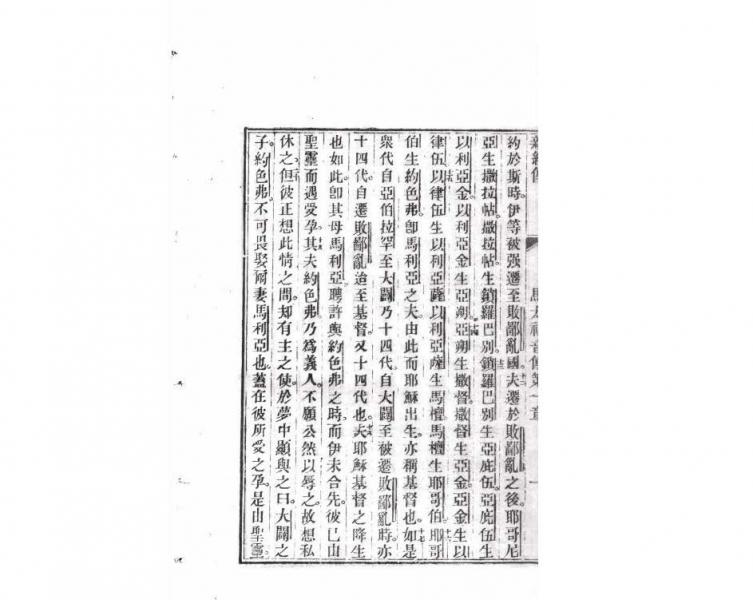 約於斯時伊等被强遷至敗鄙亂國夫遷於敗鄙亂之後耶哥尼
亞生撒拉帖撒拉帖生鎖羅巴別鎖羅巴別生亞庇伍亞庇伍生
以利亞金以利亞金生亞朔亞朔生撒督撒督生亞金亞金生以
律伍以律伍生以利亞薩以利亞薩生馬檀馬檀生耶哥伯耶哥
伯生約色弗卽馬利亞之夫由此而耶穌出生亦稱基督也如是
衆代自亞伯拉罕至大闢乃十四代自大闢至被遷敗鄙亂時亦
十四代自遷敗鄙亂迨至基督又十四代也夫耶穌基督之降生
也如此卽其母馬利亞聘許與約色弗之時而伊未合先彼已由
聖靈而遇受孕其夫約色弗乃爲義人不願公然以辱之故想私
休之但彼正想此情之間却有主之使於夢中顯與之曰大闢之
子約色弗不可畏娶爾妻馬利亞也蓋在彼所受之孕是由聖靈